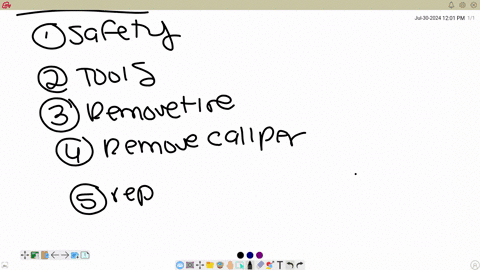 Jul-30-2024 12:01 PM 1/1
① safety
② TOOlS
③ Removetire
④ Remove caliper
⑤ rep